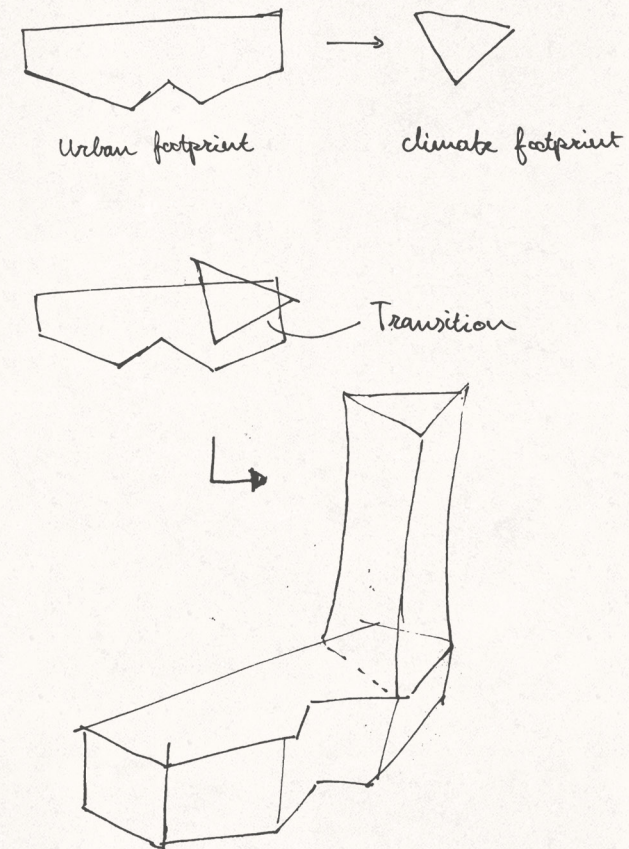 Urban footprint
climate footprint
Transition